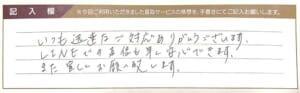 記入欄
※今回ご利用いただきました買取サービスの感想を、手書きにてご記入お願いします。
いつも迅速なご対応ありがとうございます。
LINEでの返信も早く安心できます。
また宜しくお願い致します。